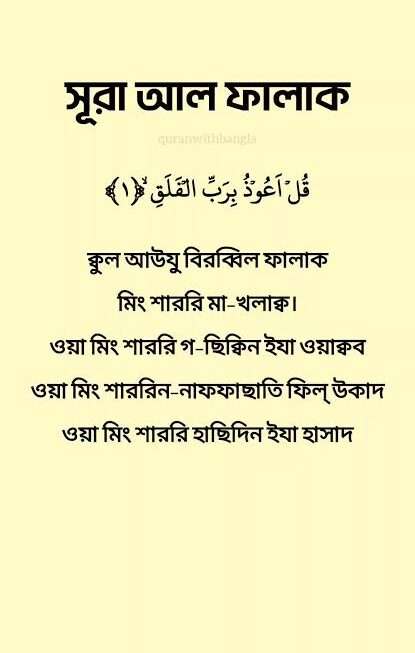 সূরা আল ফালাক
quranwithbangla
قُلۡ اَعُوۡذُ بِرَبِّ الۡفَلَقِ ۙ﴿۱﴾
ক্বুল আউযু বিরব্বিল ফালাক
মিং শাররি মা-খলাক্ব।
ওয়া মিং শাররি গ-ছিক্বিন ইযা ওয়াক্বব
ওয়া মিং শাররিন-নাফফাছাতি ফিল্ উকাদ
ওয়া মিং শাররি হাছিদিন ইযা হাসাদ